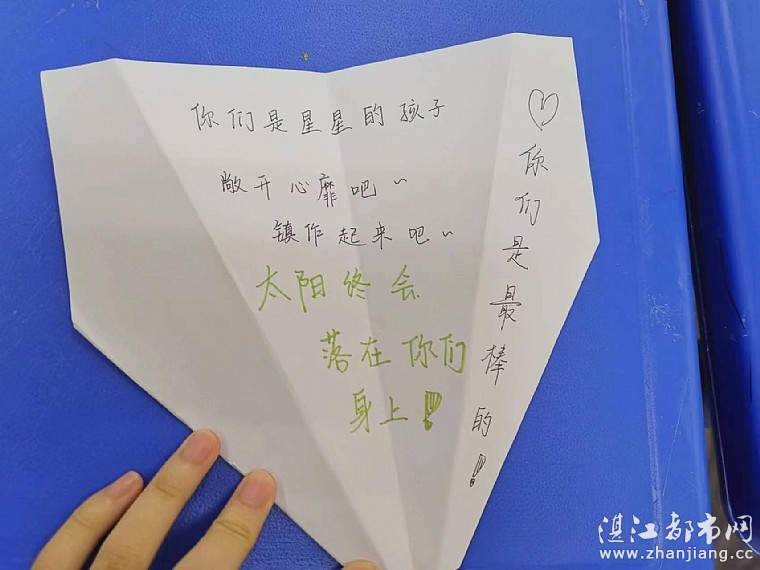 你们是星星的孩子
敞开心靡吧~
镇作起来吧~
太阳终会
落在你们
身上!
♡你们是最棒的!
湛江都市网
www.zhanjiang.cc